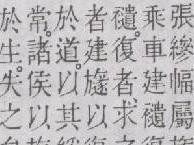 張縿幅屬
乘車建
復者求
者建旞以
於道。以其
常。諸侯以
於生。失之